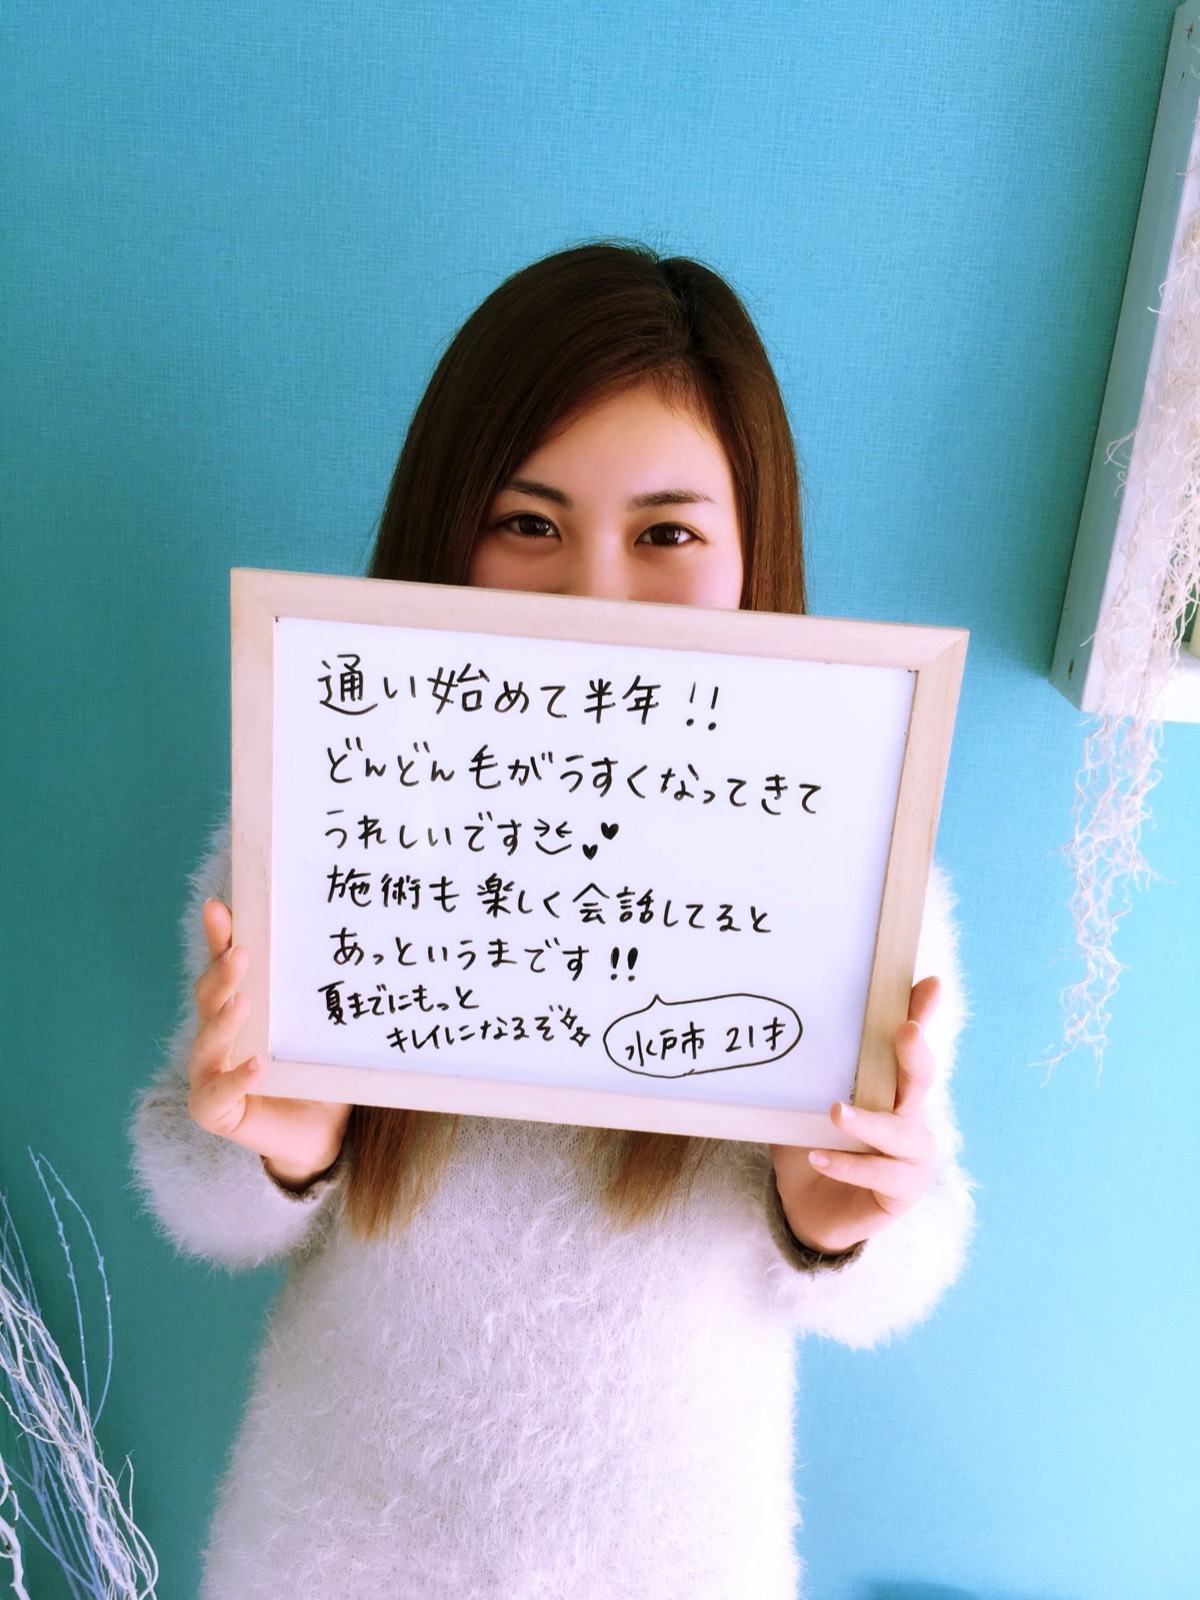 通い始めて半年!!
どんどん毛がうすくなってきて
うれしいです
施術も楽しく会話してると
あっというまです!!
夏までにもっと
キレイになるぞ
水戸市 21才